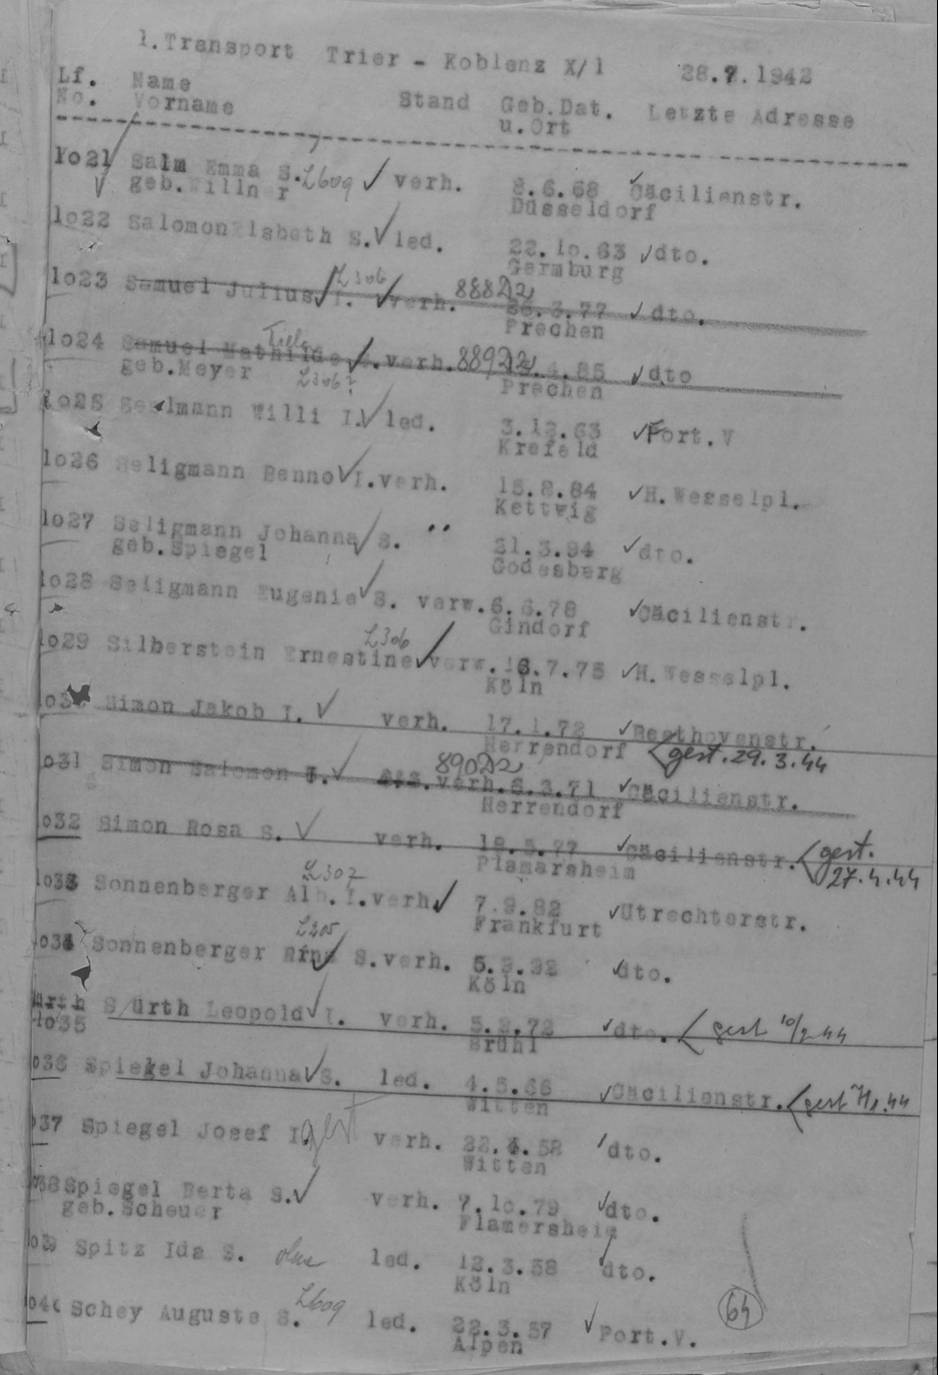 1.Transport Trier - Koblenz X/1 28.7.1942
Lf. Name Stand Geb.Dat. Letzte Adresse
No. Vorname u.Ort
lo21 Salm Emma S. L609 verh. 8.6.68 Cäcilienstr.
geb.Willner Düsseldorf
lo22 Salomon Elsbeth S. led. 22.10.63 dto.
Germburg
lo23 Samuel Julius I. L306 verh. 888 26.3.77 dto.
Frechen
lo24 Samuel Mathilde S. verh. 889 .4.85 dto
geb.Meyer L306 Frechen
lo25 Willi I. led. 3.12.63 Fort.V
Krefeld
lo26 Seligmann Benno I. verh. 15.8.84 H.Wesselpl.
Kettwig
lo27 Seligmann Johanna S. " 21.3.94 dto.
geb.Spiegel Godesberg
lo28 Seligmann Eugenie S. verw. 6.6.78 Cäcilienstr.
Gindorf
lo29 Silberstein Ernestine L306 verw. 16.7.75 H.Wesselpl.
Köln
lo3 Simon Jakob I. verh. 17.1.72 Beethovenstr.
Herrendorf gest.29.3.44
o31 Simon Salomon I. 890 verh. 6.3.71 Cäcilienstr.
Herrendorf
o32 Simon Rosa S. verh. 18.5.77 Cäcilienstr. gest.
Flamersheim 27.4.44
lo33 Sonnenberger Alb. I. L307 verh. 7.9.82 Utrechterstr.
Frankfurt
o34 Sonnenberger S. verh. 5.3.92 dto.
Köln
ürth S/ürth Leopold I. verh. 5.2.72 dto. gest 10/2 44
lo35 Brühl
o36 Spiegel Johanna S. led. 4.5.66 Cäcilienstr. gest 44
Witten
o37 Spiegel Josef I. gest verh. 22.4.58 dto.
Witten
o38 Spiegel Berta S. verh. 7.10.79 dto.
geb.Scheuer Flamersheim
o39 Spitz Ida S. led. 12.3.58 dto.
Köln
o40 Schey Auguste S. L609 led. 22.3.57 Fort.V.
Alpen
64